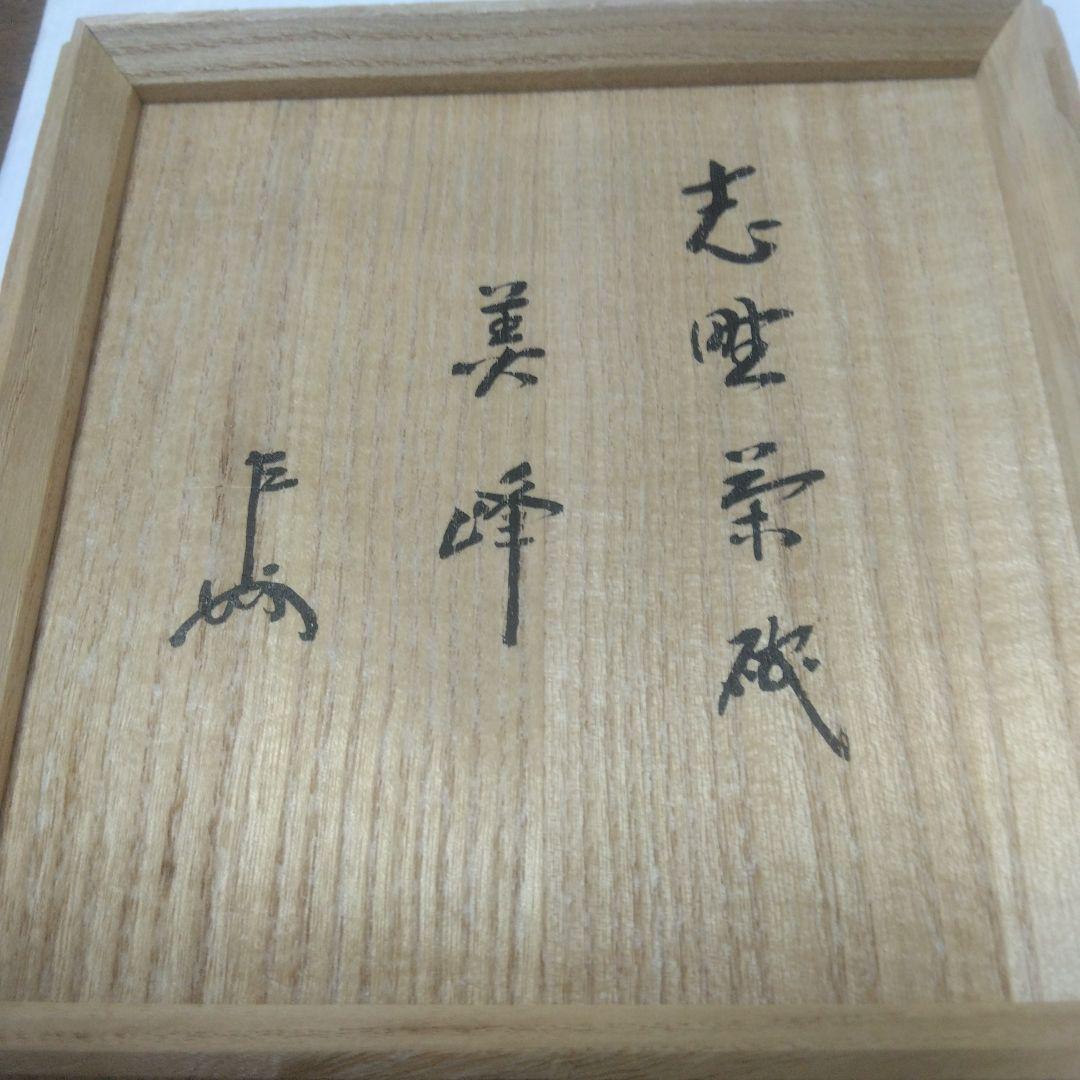 志野茶碗
美峰